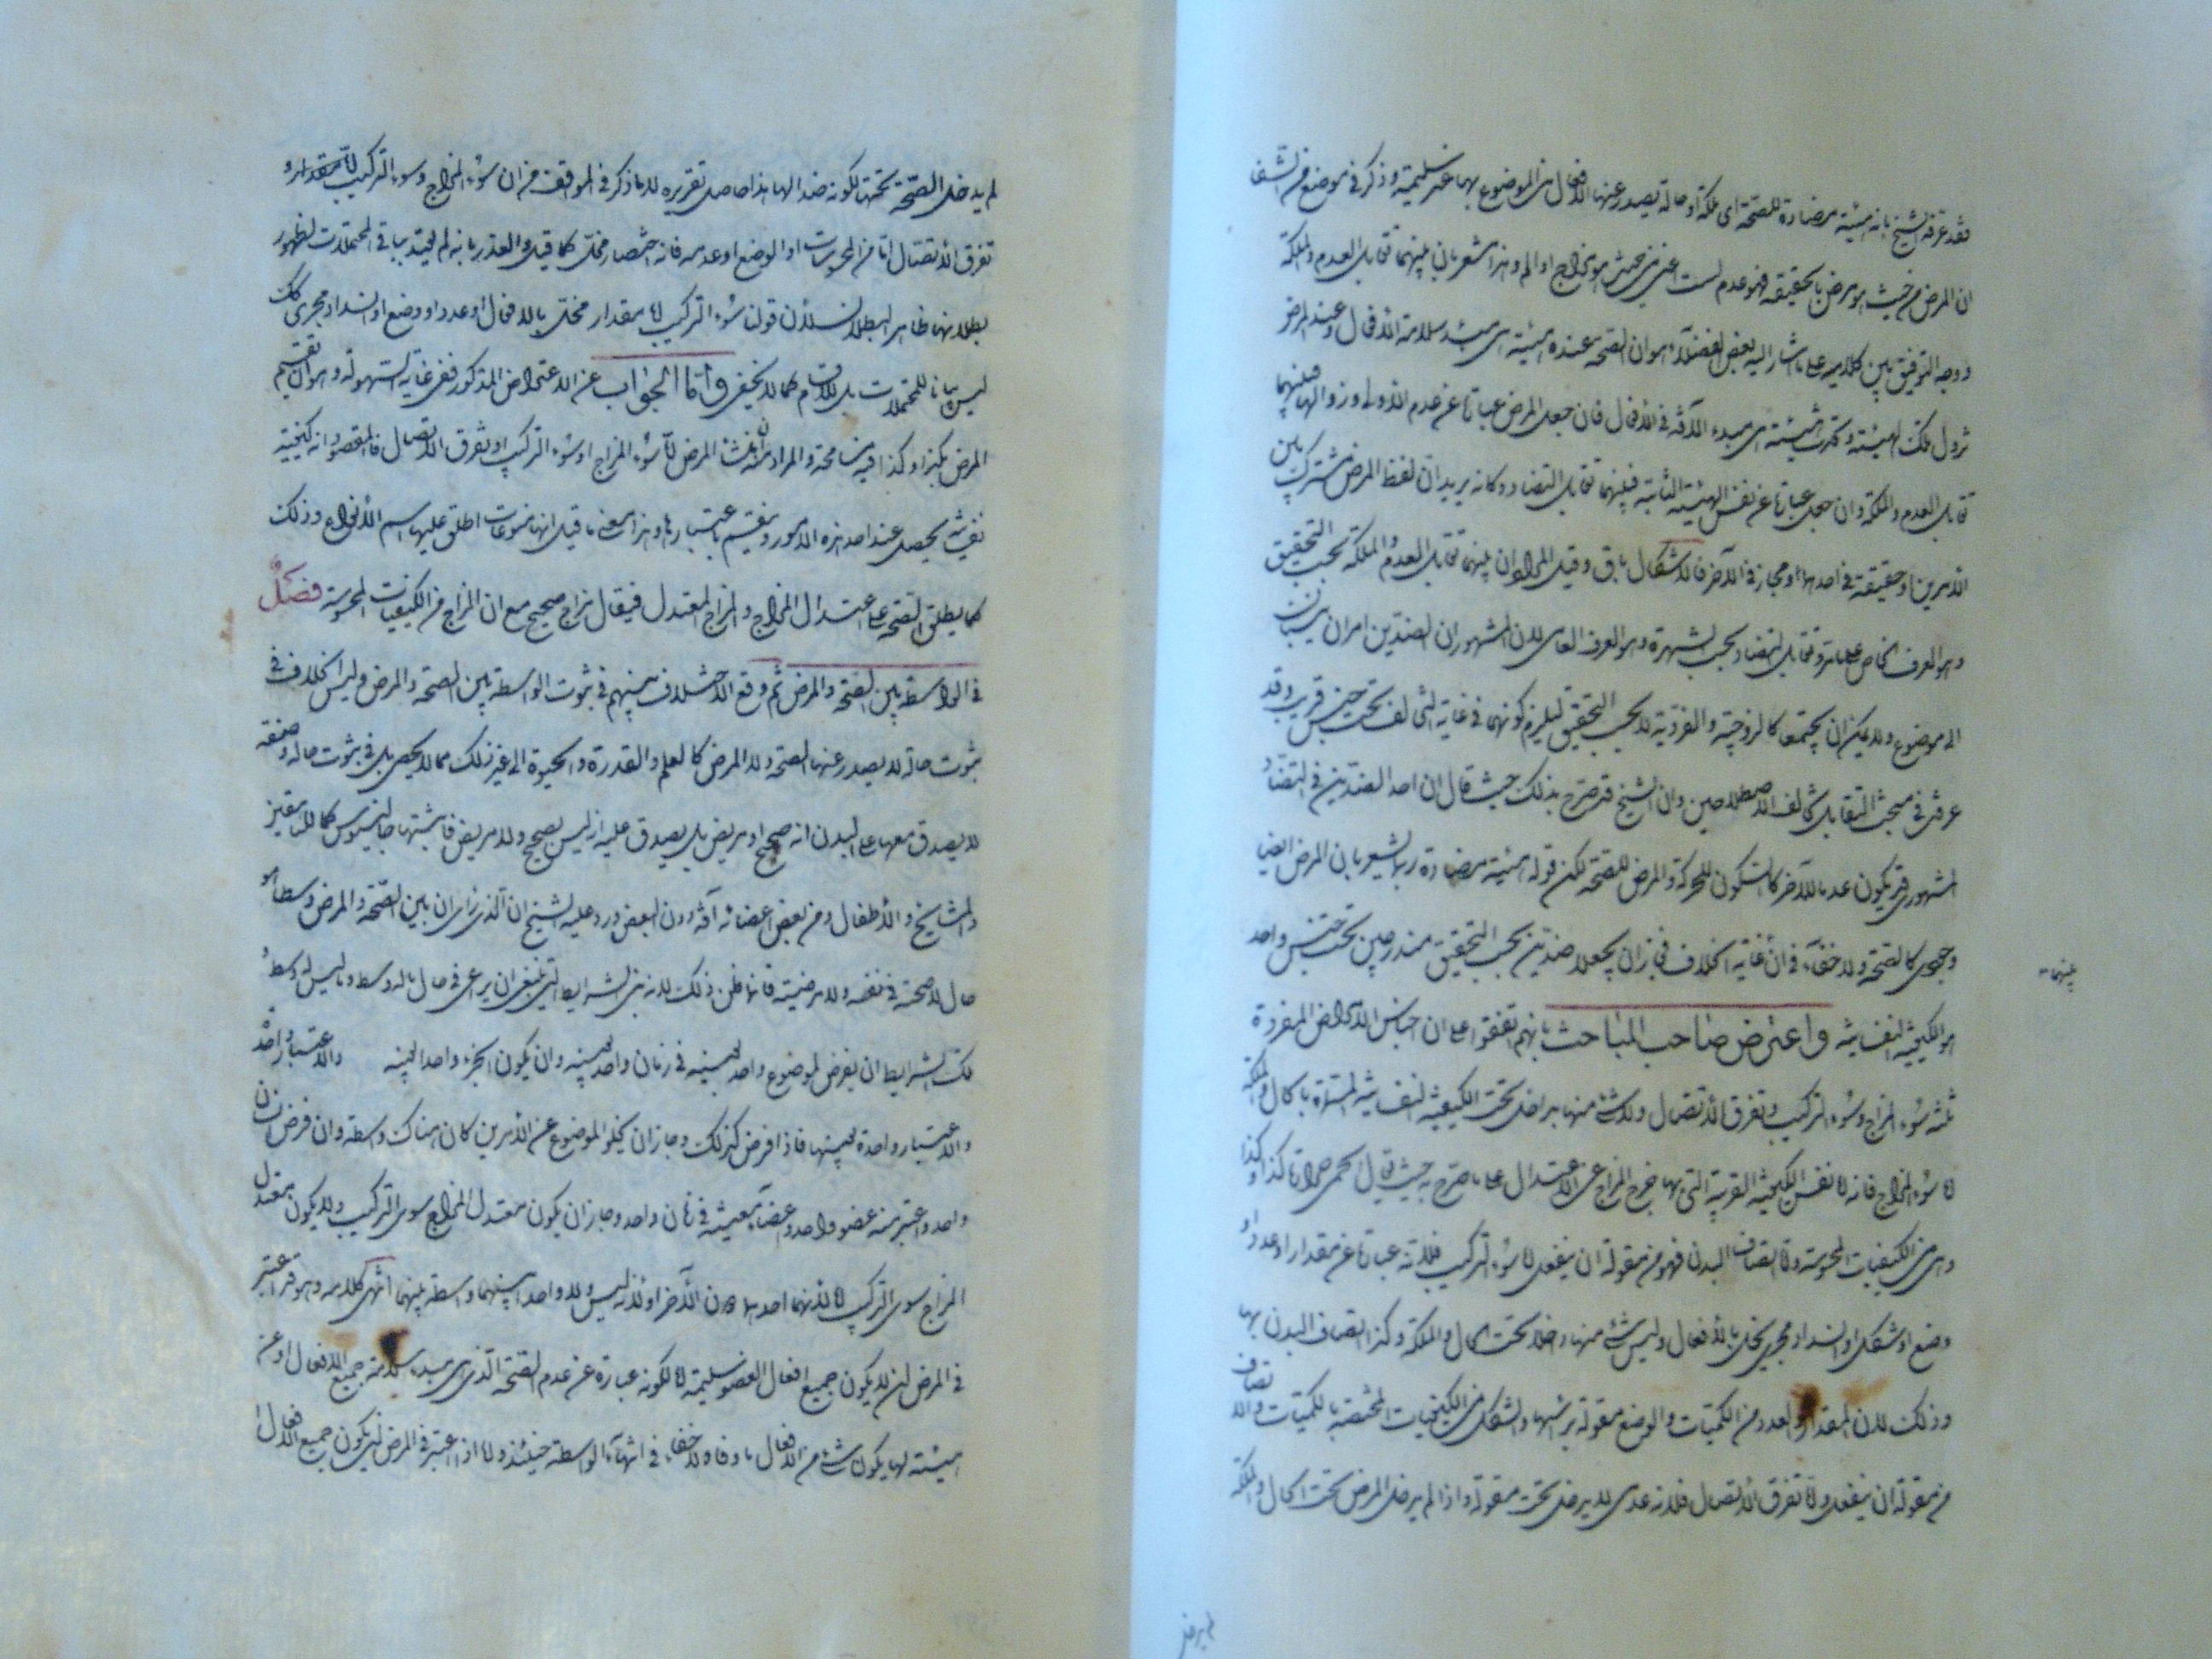 فقد عرفه الشيخ بانه هيئة مضادة للصحة اى ملكة او حالة تصدر عنها الافعال من الموضوع بها غير سليمة وذكر فى موضع من الشفا
ان المرض من حيث هو مرض بالحقيقة فهو عدم لست اعنى من حيث هو مزاج او الم وهذا مشعر بان بينهما تقابل العدم والملكة
ووجه التوفيق بين كلاميه على ما اشار اليه بعض الفضلاء هو ان الصحة عنده هيئة هى مبدء سلامة الافعال وعند المرض
تزول تلك الهيئة وتحدث هيئة هى مبدء الآفة فى الافعال فان جعل المرض عبارة عن عدم الاولى وزوالها فبينهما
تقابل العدم والملكة وان جعل عبارة عن نفس الهيئة الثانية فبينهما تقابل التضاد وكانه يريد ان لفظ المرض مشترك بين
الامرين او حقيقة فى احدهما ومجاز فى الآخر فالاشكال باق وقيل المراد ان بينهما تقابل العدم والملكة بحسب التحقيق
وهو العرف الخاص على ما مر وتقابل التضاد بحسب الشهرة وهو العرف العامى لان المشهور ان الضدين امران ينسبان
الى موضوع ولا يمكن ان يجتمعا كالزوجية والفردية لا بحسب التحقيق ليلزم كونهما فى غاية التخالف تحت جنس قريب وقد
عرفت فى مبحث التقابل تخالف الاصطلاحين وان الشيخ قد صرح بذلك حيث قال ان احد الضدين فى التضاد
المشهورى قد يكون عدما للآخر كالسكون للحركة والمرض للصحة لكن قوله هيئة مضادة ربما يشعر بان المرض ايضا
وجودى كالصحة ولا خفاء فى ان غاية الخلاف فجاز ان يجعلا ضدين بحسب التحقيق مندرجين تحت جنس واحد
بينهما
هو الكيفية النفسانية واعترض صاحب المباحث بانهم اتفقوا على ان اجناس الامراض المفردة
ثلثة سوء المزاج وسوء التركيب وتفرق الاتصال ولا شئ منها بداخل تحت الكيفية النفسانية المسماة بالحال والملكة
اما سوء المزاج فانه اما نفس الكيفية الغريبة التى بها خرج المزاج عن الاعتدال على ما صرح به حيث قال الحمى حرارة كذا وكذا
وهى من الكيفيات المحسوسة واما اتصاف البدن فهو من مقولة ان ينفعل اما سوء التركيب فلانه عبارة عن مقدار او عدد او
وضع او شكل او انسداد مجرى يخل بالافعال وليس شئ منها داخلا تحت الحال والملكة وكذا اتصاف البدن بها
وذلك لان المقدار والعدد من الكميات والوضع مقولة برأسها والشكل من الكيفيات المختصة بالكميات والاتصاف
من مقولة ان ينفعل واما تفرق الاتصال فلانه عدمى لا يدخل تحت مقولة واذا لم يدخل المرض تحت الحال والملكة
لم يدخل
لم يدخل الصحة تحتها لكونه ضدا لها هذا حاصل تقريره لا ما ذكر فى المواقف من ان سوء المزاج وسوء التركيب اما مقدار او
تفرق الاتصال اما من المحسوسات او الوضع او عدمه فانه اختصار مخل كما قيل والعذر بانه لم يعتد بباقى المحتملات لظهور
بطلانها ظاهر البطلان لان قولنا سوء التركيب اما مقدار مخل بالافعال او عدد او وضع او انسداد مجرى كذلك
ليس بيانا للمحتملات بل للاقسام كما لا يخفى واما الجواب عن الاعتراض المذكور ففى غاية السهولة وهو ان تقسيم
المرض بكذا وكذا فيه مسامحة والمراد منه ان منشأ المرض اما سوء المزاج او سوء التركيب او تفرق الاتصال فالمقصود انه كيفية
نفسانية يحصل عند احد هذه الامور وينقسم باعتبارها وهذا معنى ما قيل انها منوعات اطلق عليها اسم الانواع وذلك
كما يطلق الصحة على اعتدال المزاج والمزاج المعتدل فيقال مزاج صحيح مع ان المزاج من الكيفيات المحسوسة فصل
فى الواسطة بين الصحة والمرض ثم وقع الاختلاف بينهم فى ثبوت الواسطة بين الصحة والمرض وليس الخلاف فى
ثبوت حالة لا يصدر عنها الصحة ولا المرض كالعلم والقدرة والحيوة الى غير ذلك مما لا يحصى بل فى ثبوت حالة وصفة
لا يصدق معها على البدن انه صحيح او مريض بل يصدق عليه انه ليس بصحيح ولا مريض فاثبتها جالينوس كما للناقهين
والمشايخ والاطفال ومن ببعض اعضائه آفة دون البعض ورد عليه الشيخ ان الذى رأى ان بين الصحة والمرض وسطا هو
حال لا صحة فى نفسه ولا مرضية فانما ظن ذلك لانه نسى الشرايط التى ينبغى ان يراعى فى حال ماله وسط وما ليس له وسط
تلك الشرايط ان يفرض الموضوع واحد بعينه فى زمان واحد بعينه وان يكون الجزء واحدا بعينه والاعتبار واحدا
والاعتبار واحدة بعينها فاذا فرض كذلك وجاز ان يخلو الموضوع عن الامرين كان هناك واسطة وان فرض انسان
واحد واعتبر منه عضو واحد او اعضاء معينة فى زمان واحد وجاز ان يكون معتدل المزاج سوى التركيب ولا يكون معتدل
المزاج سوى التركيب اما لانهما احدهما دون الآخر او لانه ليس ولا واحد منهما بينهما واسطة انتهى كلامه وهو قد اعتبر
فى المرض ان لا يكون جميع افعال العضو سليمة اما لكونه عبارة عن عدم الصحة الذى هى مبدء سلامة جميع الافعال او عن
هيئة بها يكون شئ من الافعال مأوفا ولا خفاء فى انتفاء الواسطة حينئذ واما اذا اعتبر فى المرض ان يكون جميع الافعال